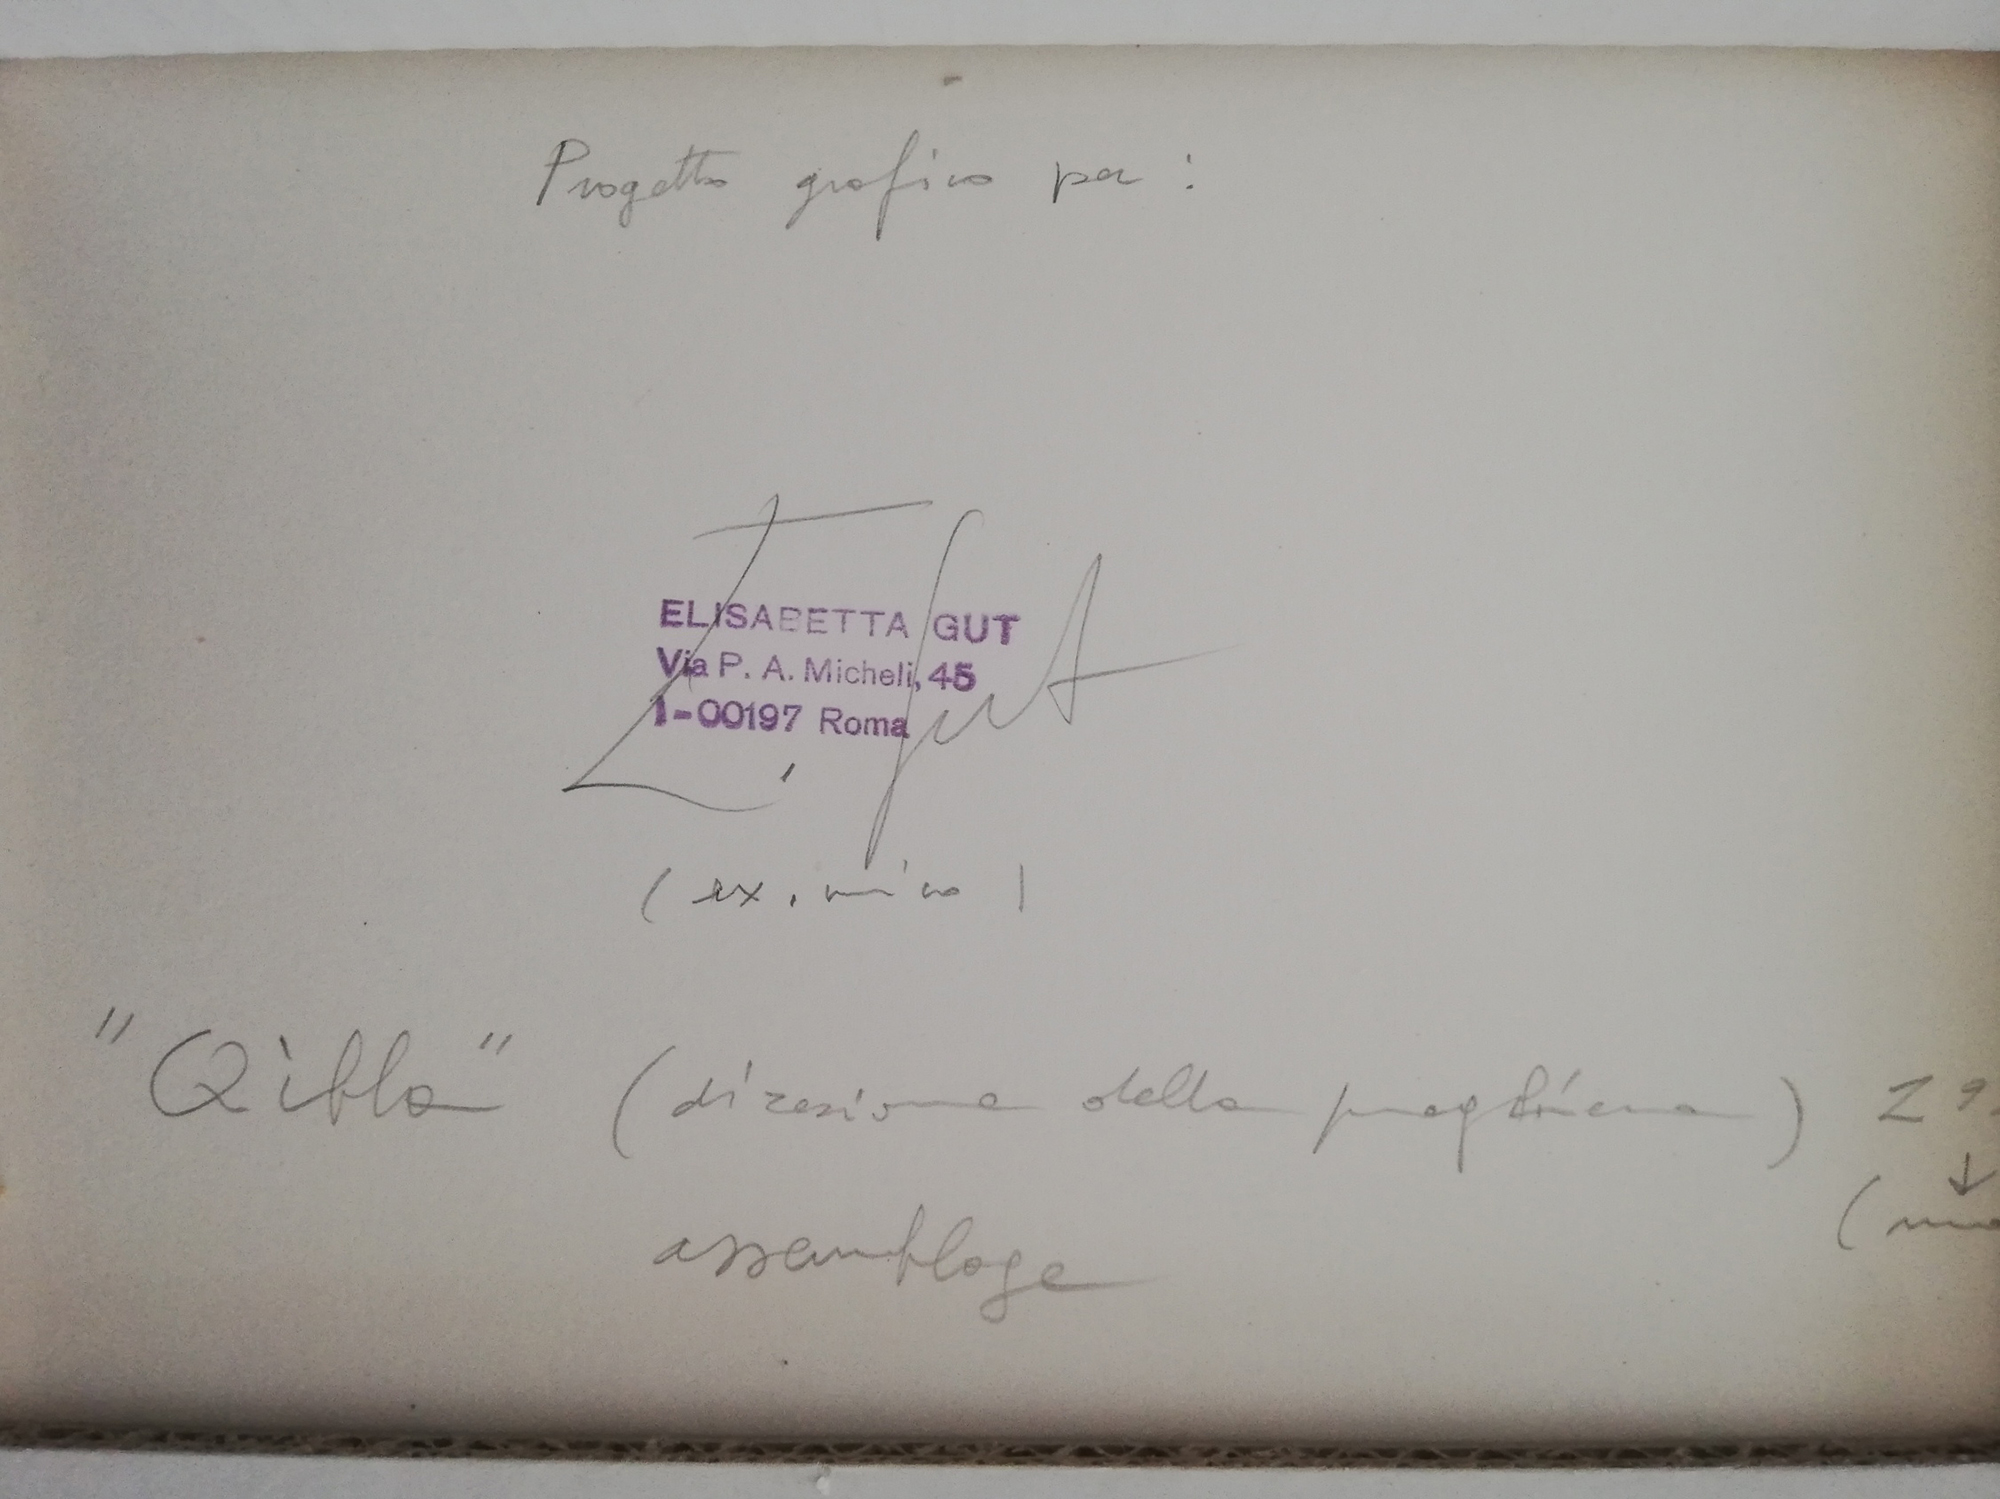 Progetto grafico per :
E. Gut
ELISABETTA GUT
Via P. A. Micheli, 45
I-00197 Roma
(ex. unico)
"Qibla" (direzione della preghiera)
assemblage